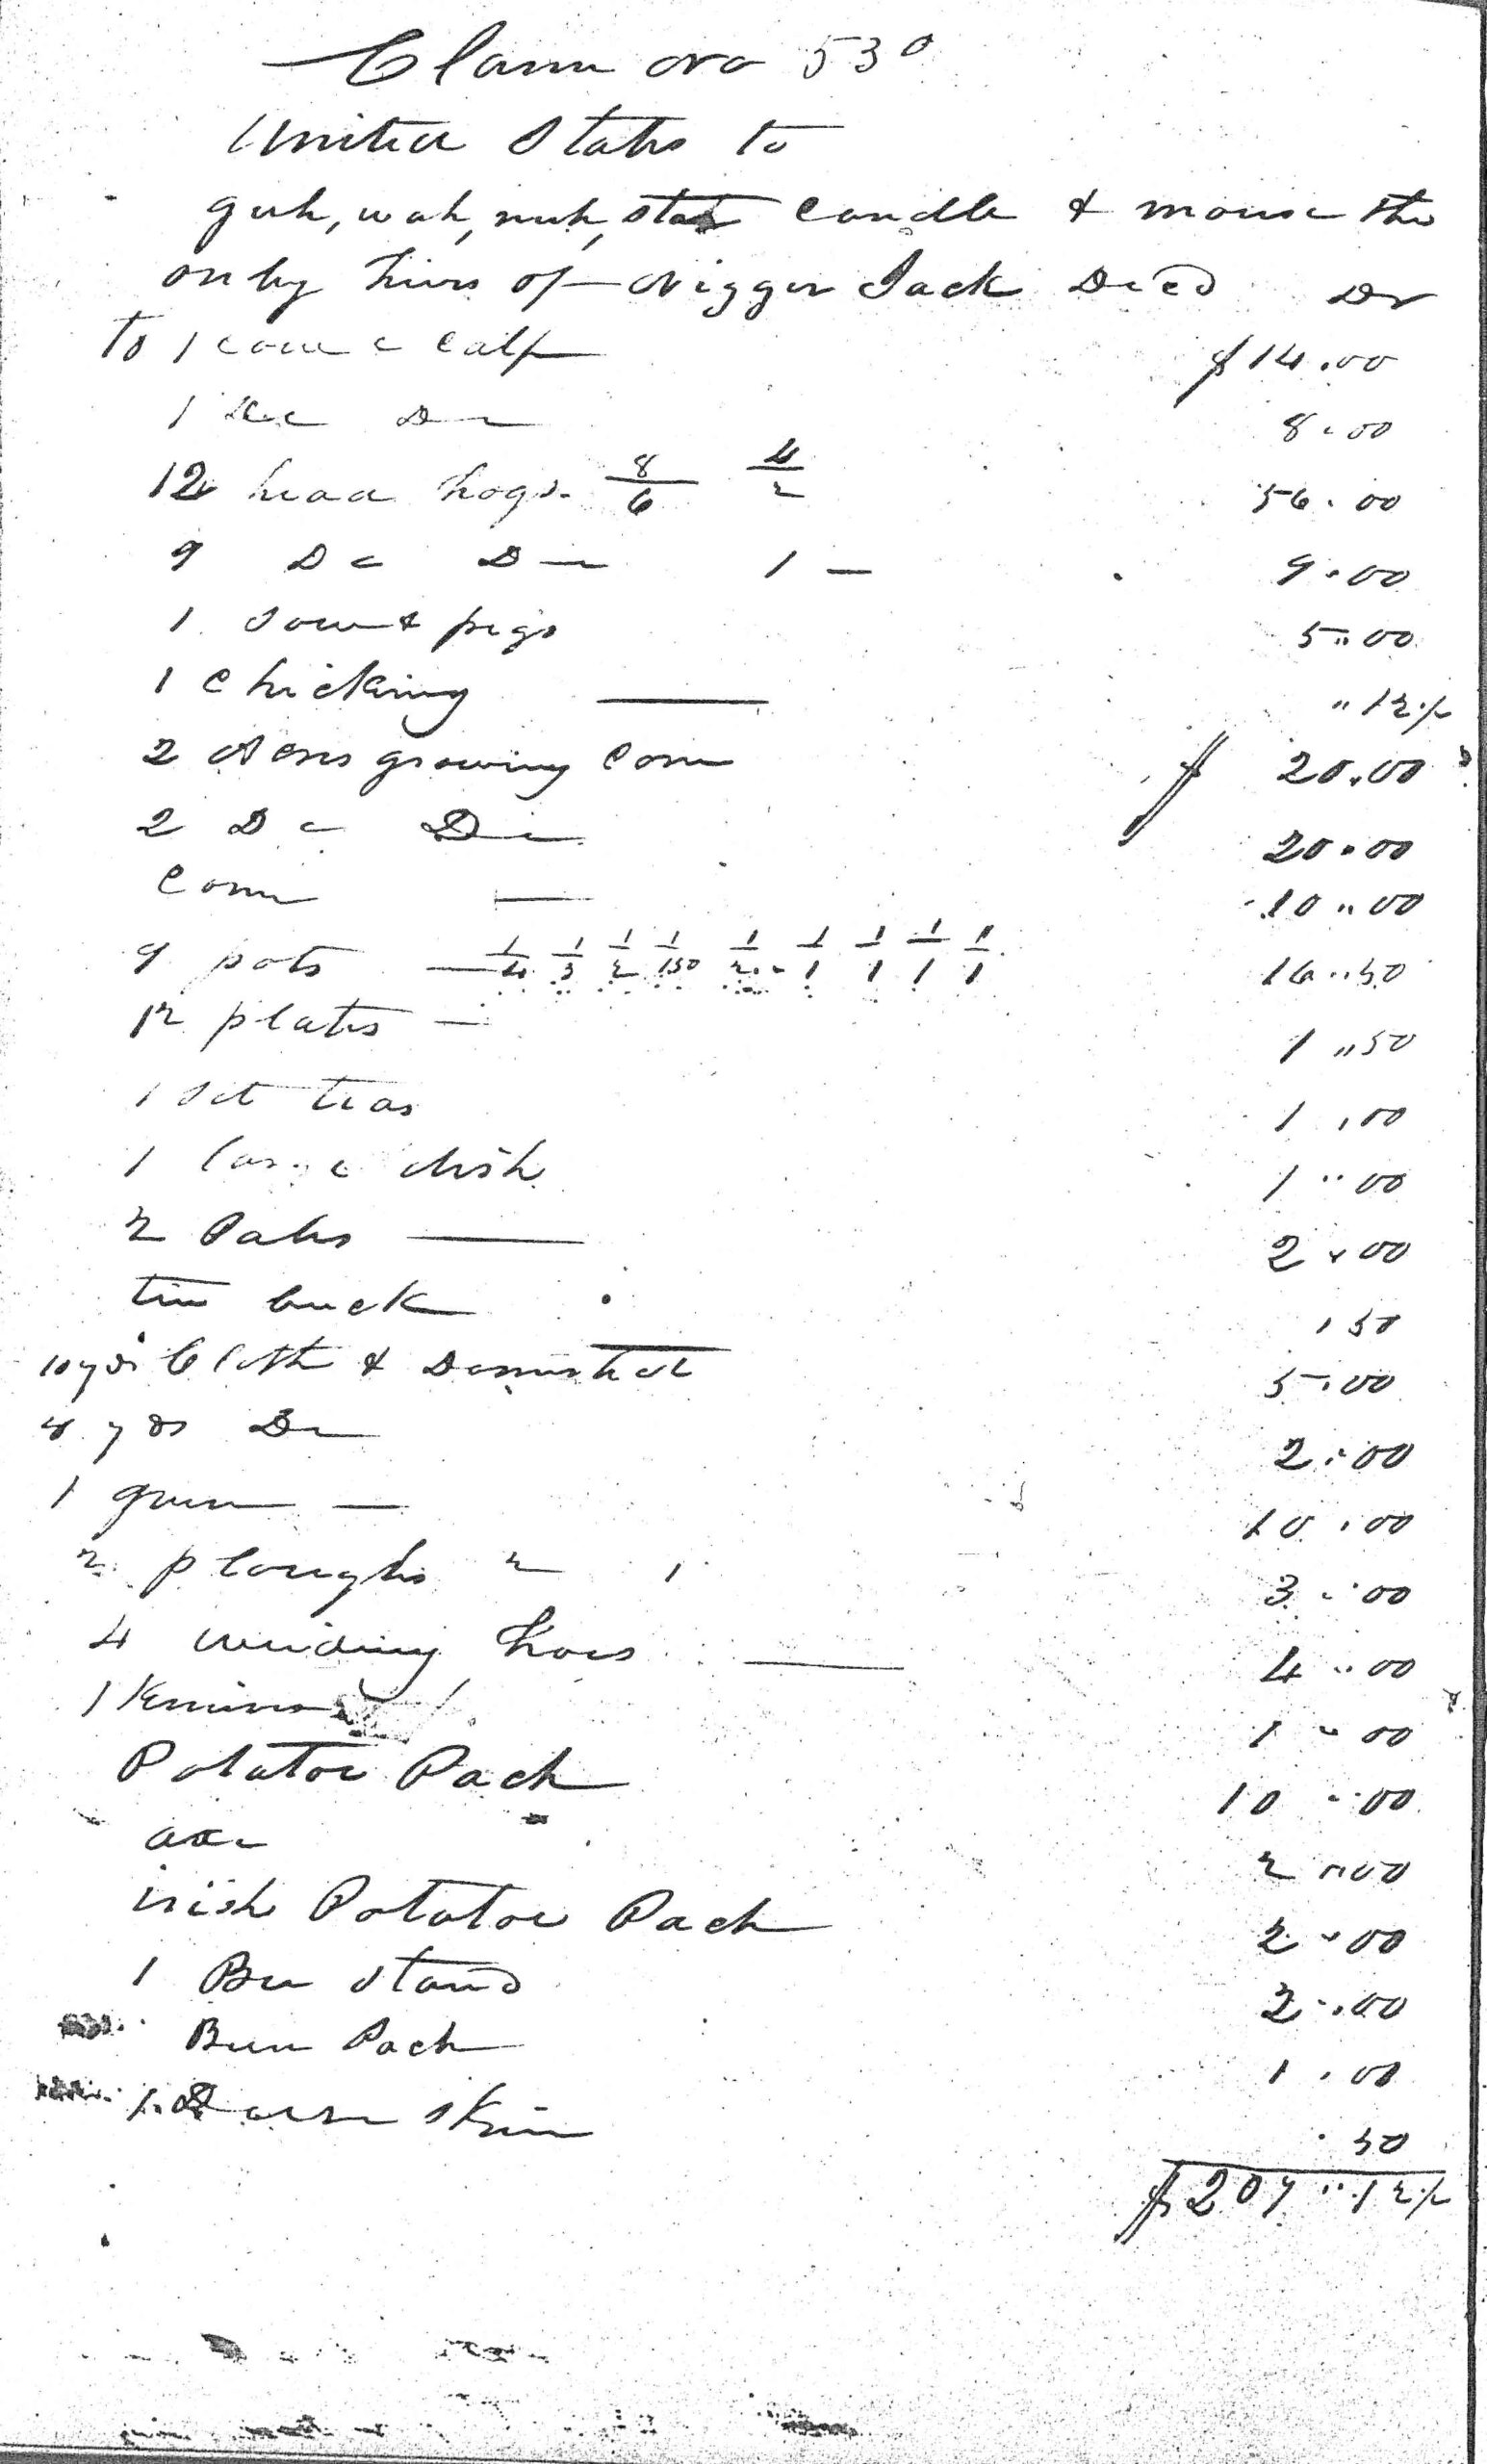 Claim No 530
United States To
guh, wah, nuh, star Candle & mouse the
only hiers of Nigger Jack Decd Dr
To 1 cow & Calf $14.00
1 Do Do 8.00
12 head hogs. 8/6 4/2 56.00
9 Do Do 1 — 9.00
1 Sow & pigs 5.00
1 Chicking — " 12½
2 Acres growing Corn $ 20.00
2 Do Do 20.00
Corn — 10.00
9 pots — 1/4 1/3 1/2 1/150 1/2 1/1 1/1 1/1 1/1 16.50
12 plates — 1.50
1 Set teas 1.00
1 large dish 1.00
2 Pales — 2.00
tin buck .50
10 yds Cloth & Domestick 5.00
4 yds Do 2.00
1 gun — 10.00
2 ploughs 2 1 3.00
4 weiding hoes — 4.00
1 00
Potatoe Pach 10.00
axe 2.00
irish Potatoe Pach 2.00
1 Bee stand 2.00
Been Pach 1.00
1 skin .50
$207.12½